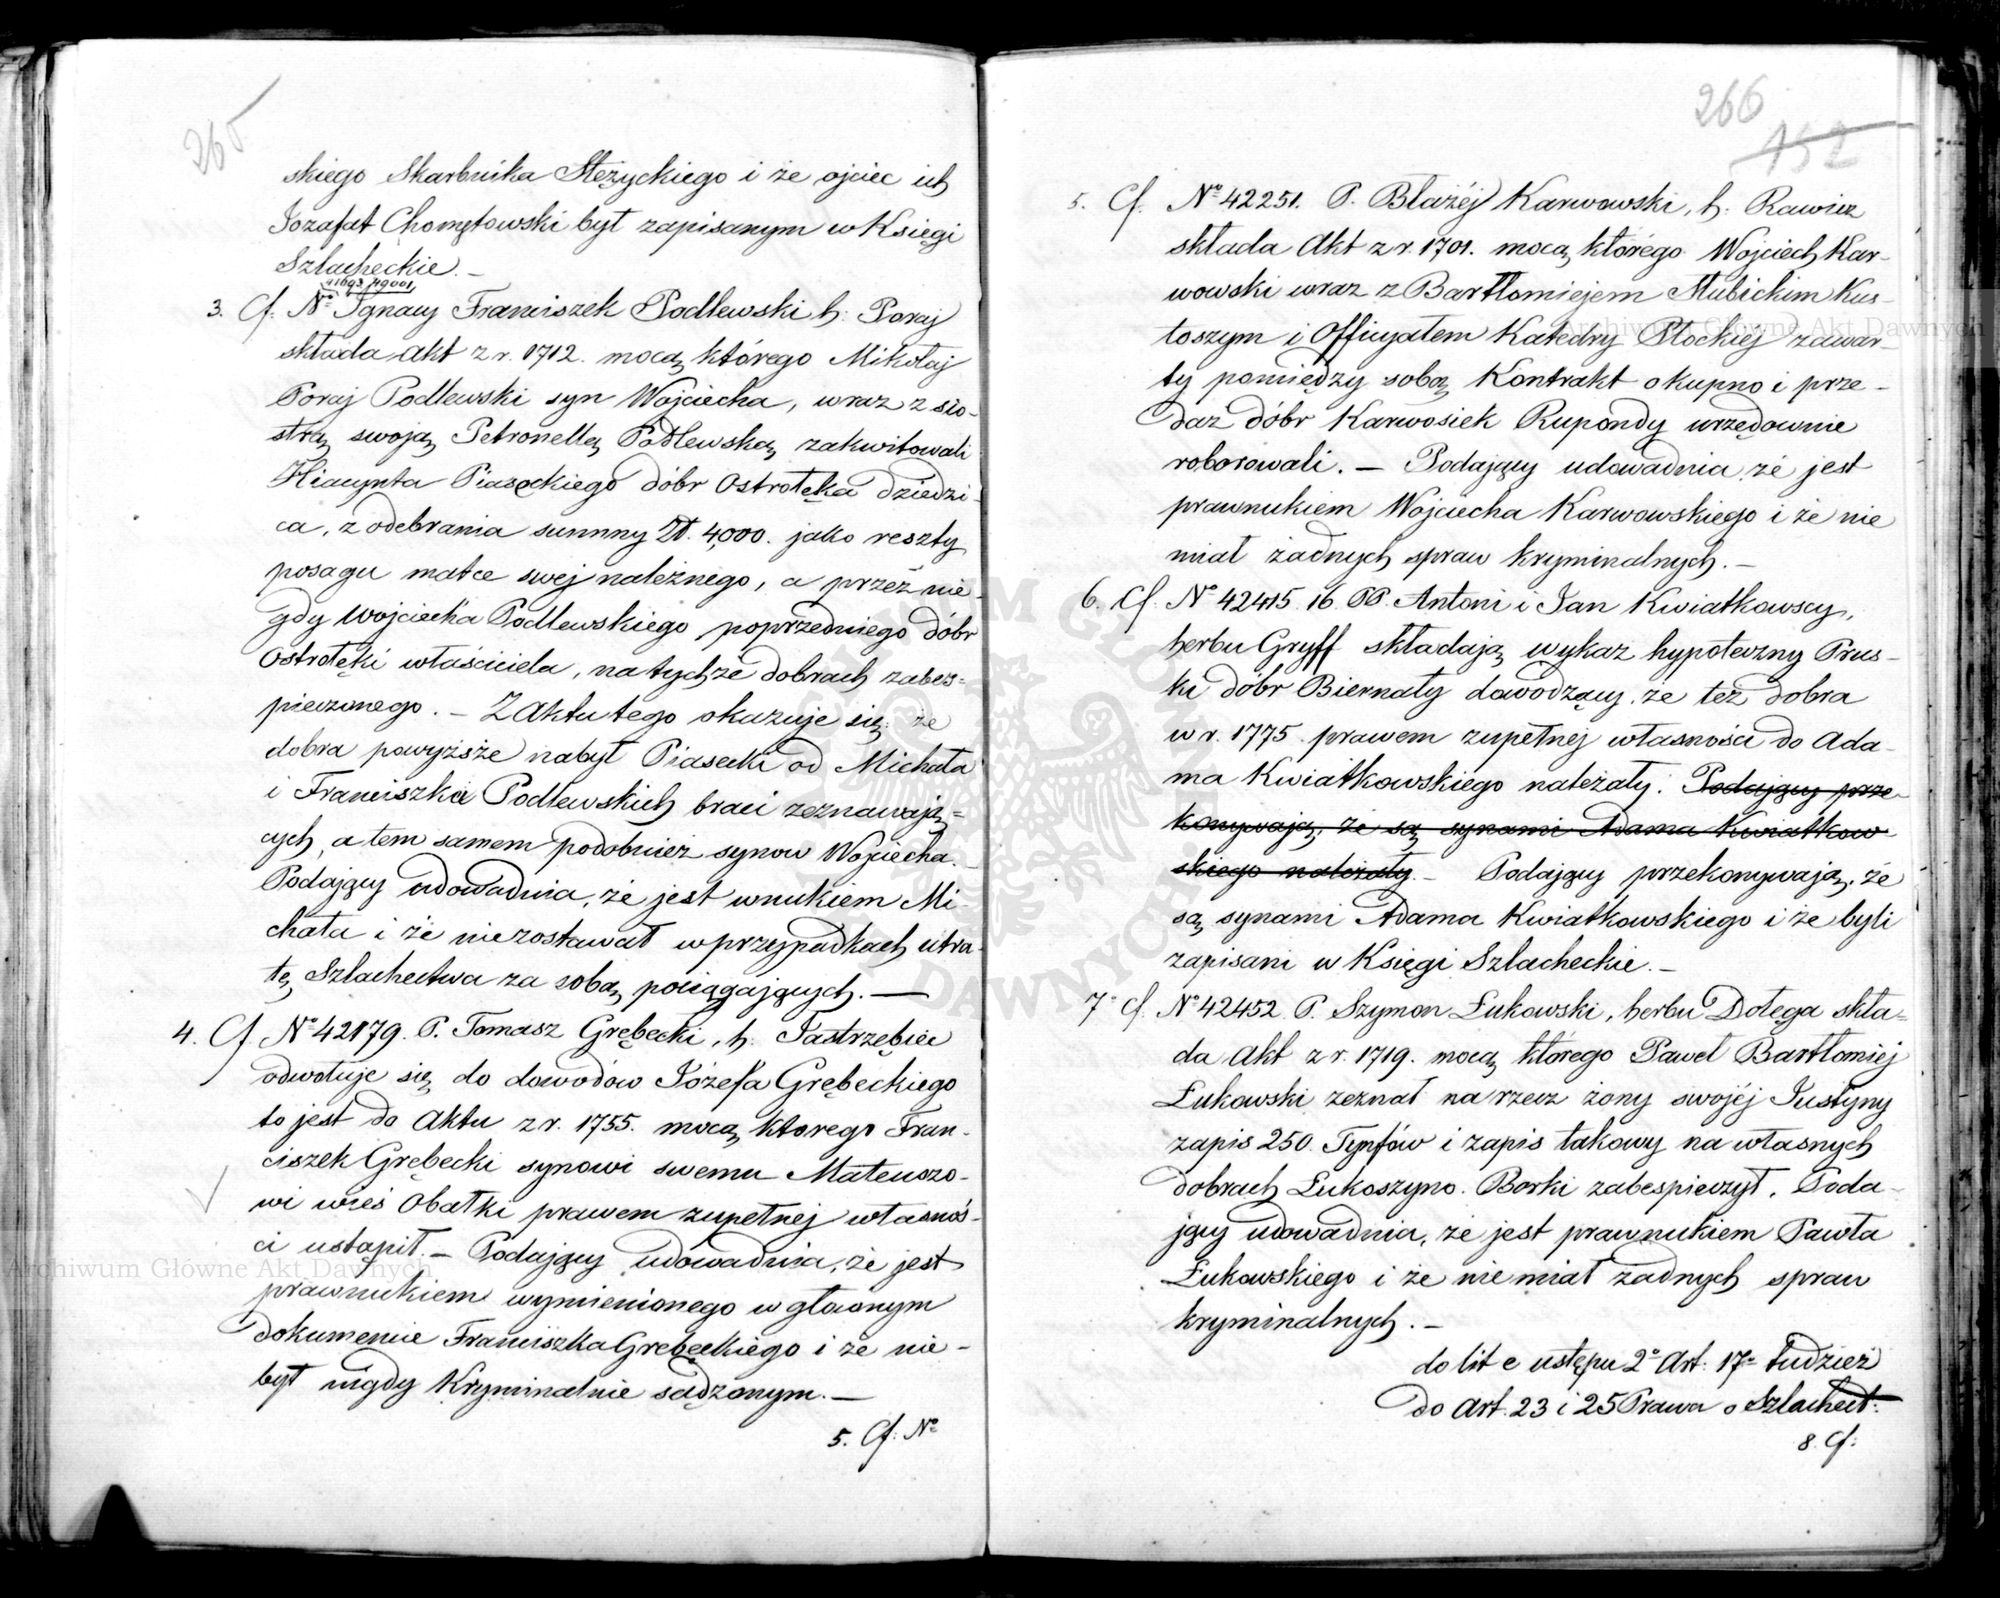 265
skiego Skarbnika Stężyckiego i że ojciec ich
Jozafat Chomętowski był zapisanym w Księgi
Szlacheckie. –
3. Cf. Nº Ignacy Franciszek Podlewski h: Poraj
składa Akt z r. 1712. mocą którego Mikołaj
Poraj Podlewski syn Wojciecha, wraz z sio-
strą swoją Petronellą Podlewską zakwitowali
Hiacynta Piaseckiego dóbr Ostrołęka dziedzi-
ca, z odebrania summy Zł. 4,000. jako reszty
posagu matce swej należnego, a przez nie-
gdy Wojciecha Podlewskiego poprzedniego dóbr
Ostrołęki właściciela, na tychże dobrach zabes=
pieczonego. – Z Aktu tego okazuje się że
dobra powyższe nabył Piasecki od Michała
i Franciszka Podlewskich braci zeznawają=
cych, a tem samem podobnież synow Wojciecha.
Podający udowadnia, że jest wnukiem Mi-
chała i że niezostawał w przypadkach utra-
tę Szlachectwa za sobą pociągających. —
4. Cf. Nº 42179. P. Tomasz Grębecki, h. Jastrzębiec
odwołuje się do dowodów Józefa Grębeckiego
to jest do Aktu z r. 1755. mocą ktorego Fran-
ciszek Grębecki synowi swemu Mateuszo-
wi wieś Obałki prawem zupełnej własnoś-
ci ustąpił. – Podający udowadnia, że jest
prawnukiem wymienionego w głównym
dokumencie Franciszka Grębeckiego i że nie-
był nigdy Kryminalnie sądzonym. —
5. Cf: Nº
266
152
5. Cf. Nº 42251. P. Błażéj Karwowski, h. Rawicz
składa Akt z r. 1701. mocą którego Wojciech Kar-
wowski wraz z Bartłomiejem Słubickim Kus-
toszym i Officyałem Katedry Płockiej zawar-
ty pomiędzy sobą Kontrakt o kupno i prze-
daż dóbr Karwosiek Rupondy urzędownie
roborowali. – Podający udowadnia że jest
prawnukiem Wojciecha Karwowskiego i że nie
miał żadnych spraw kryminalnych. –
6. Cf. Nº 42415. 16. PP. Antoni i Jan Kwiatkowscy,
herbu Gryff składają wykaz hypoteczny Prus-
ki dóbr Biernaty dowodzący, że też dobra
w r. 1775 prawem zupełnej własności do Ada-
ma Kwiatkowskiego należały. Podający prze-
konywają, że są synami Adama Kwiatkow-
skiego należały. – Podający przekonywają, że
są synami Adama Kwiatkowskiego i że byli
zapisani w Księgi Szlacheckie. –
7º Cf. Nº 42452. P. Szymon Łukowski, herbu Dołęga skła=
da Akt z r. 1719. mocą którego Paweł Bartłomiej
Łukowski zeznał na rzecz żony swojéj Justyny
zapis 250. Tynfów i zapis takowy na własnych
dobrach Łukoszyno. Borki zabespieczył. Poda-
jący udowadnia, że jest prawnukiem Pawła
Łukowskiego i że nie miał żadnych spraw
kryminalnych. –
do lit e ustępu 2º Art: 17º tudzież
do Art. 23 i 25 Prawa o Szlachect:
8. Cf:
Archiwum Główne Akt Dawnych
Archiwum Główne Akt Dawnych
ARCHIWUM GŁÓWNE AKT DAWNYCH